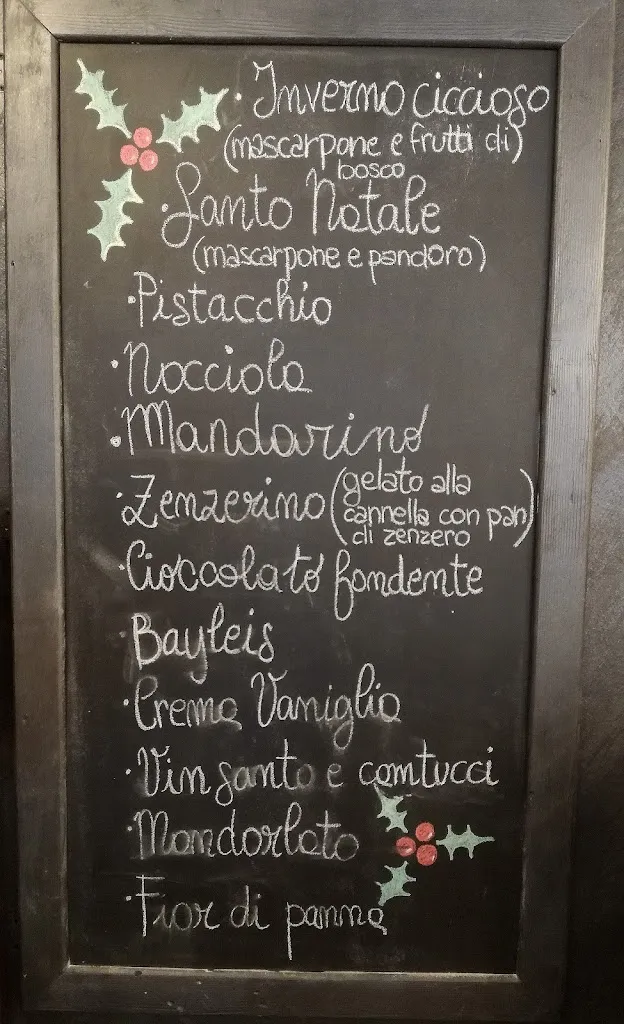 · Inverno ciccioso
(mascarpone e frutti di)
bosco
· Santo Natale
(mascarpone e pandoro)
· Pistacchio
· Nocciola
· Mandarino
· Zenzerino (gelato alla
cannella con pan)
di zenzero
· Cioccolato fondente
· Bayleis
· Crema Vaniglia
· Vin santo e comtucci
· Mandorlato
· Fior di panna